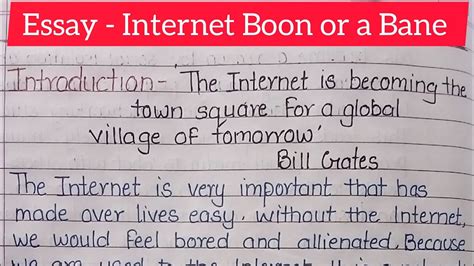 Essay - Internet Boon or a Bane
Introduction - 'The Internet is becoming the
town square for a global
village of tomorrow'
Bill Gates
The Internet is very important that has
made over lives easy. without the Internet,
we would feel bored and allienated. Because
we are used to the Internet. It is